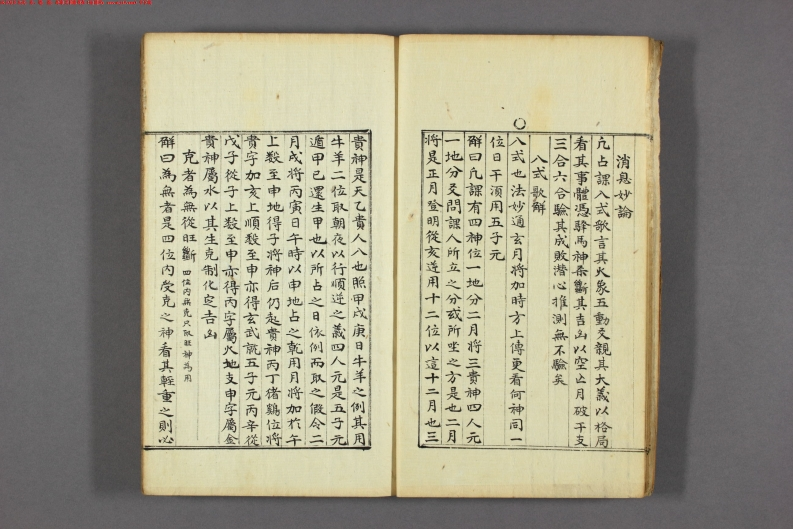 消息妙論
凢占課入式歌言其大象五動爻親其大義以格局
看其事體憑驛馬神煞斷其吉凶以空亡月破干支
三合六合驗其成敗潜心推測無不驗矣
入式歌解
入式也法妙通玄月將加時方上傳更看何神同一
位日干須用五子元
解曰凢課有四神位一地分二月將三貴神四人元
一地分爻問課人所立之分或所坐之方是也二月
將是正月登明從亥逆用十二位以這十二月也三
貴神是天乙貴人八也照甲戌庚日牛羊之例其用
牛羊二位取朝夜以行順逆之義四人元是五子元
遁甲己還生甲也以所占之日依例而取之假令二
月戌將丙寅日午時以申地占之乾用月將加於午
上殺至申地得子將神后仍起貴神丙丁猪鷄位將
貴字加亥上順殺至申亦得玄武就五子元丙辛從
戊子從子上殺至申亦得丙字屬火地支申字屬金
貴神屬水以其生克制化定吉凶
克者為無從旺斷 四位內無克只取旺神為用
解曰為無者是四位內受克之神看其輕重之則必